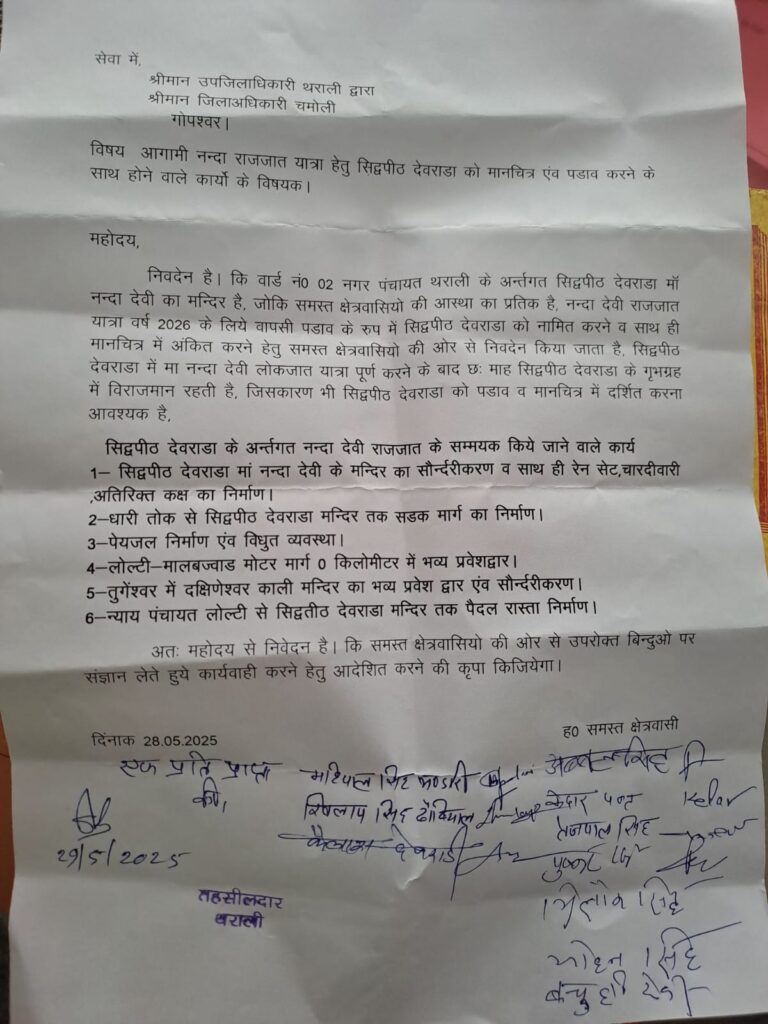 सेवा में,
श्रीमान उपजिलाधिकारी थराली द्वारा
श्रीमान जिलाअधिकारी चमोली
गोपश्वर।
विषय आगामी नन्दा राजजात यात्रा हेतु सिद्वपीठ देवराडा को मानचित्र एंव पडाव करने के
साथ होने वाले कार्यो के विषयक।
महोदय,
निवदेन है। कि वार्ड नं0 02 नगर पंचायत थराली के अर्न्तगत सिद्वपीठ देवराडा मॉ
नन्दा देवी का मन्दिर है, जोकि समस्त क्षेत्रवासियो की आस्था का प्रतिक है, नन्दा देवी राजजात
यात्रा वर्ष 2026 के लिये वापसी पडाव के रुप में सिद्वपीठ देवराडा को नामित करने व साथ ही
मानचित्र में अंकित करने हेतु समस्त क्षेत्रवासियो की ओर से निवदेन किया जाता है, सिद्वपीठ
देवराडा में मा नन्दा देवी लोकजात यात्रा पूर्ण करने के बाद छः माह सिद्वपीठ देवराडा के गृभग्रह
में विराजमान रहती है, जिसकारण भी सिद्वपीठ देवराडा को पडाव व मानचित्र में दर्शित करना
आवश्यक है,
सिद्वपीठ देवराडा के अर्न्तगत नन्दा देवी राजजात के सम्मयक किये जाने वाले कार्य
1– सिद्वपीठ देवराडा मां नन्दा देवी के मन्दिर का सौर्न्दरीकरण व साथ ही रेन सेट,चारदीवारी
,अतिरिक्त कक्ष का निर्माण।
2–धारी तोक से सिद्वपीठ देवराडा मन्दिर तक सडक मार्ग का निर्माण।
3–पेयजल निर्माण एंव विधुत व्यवस्था।
4–लोल्टी–मालबज्वाड मोटर मार्ग 0 किलोमीटर में भव्य प्रवेशद्वार।
5–तुगेंश्वर में दक्षिणेश्वर काली मन्दिर का भव्य प्रवेश द्वार एंव सौर्न्दरीकरण।
6–न्याय पंचायत लोल्टी से सिद्वतीठ देवराडा मन्दिर तक पैदल रास्ता निर्माण।
अतः महोदय से निवेदन है। कि समस्त क्षेत्रवासियो की ओर से उपरोक्त बिन्दुओ पर
संज्ञान लेते हुये कार्यवाही करने हेतु आदेशित करने की कृपा किजियेगा।
दिंनाक 28.05.2025
ह0 समस्त क्षेत्रवासी
एक प्रति प्राप्त
की,
29/5/2025
तहसीलदार
थराली
महिपाल सिंह भण्डारी
सिंह
केदार पन्त
तेजपाल सिंह
त्रिलोक सिंह
मोहन सिंह